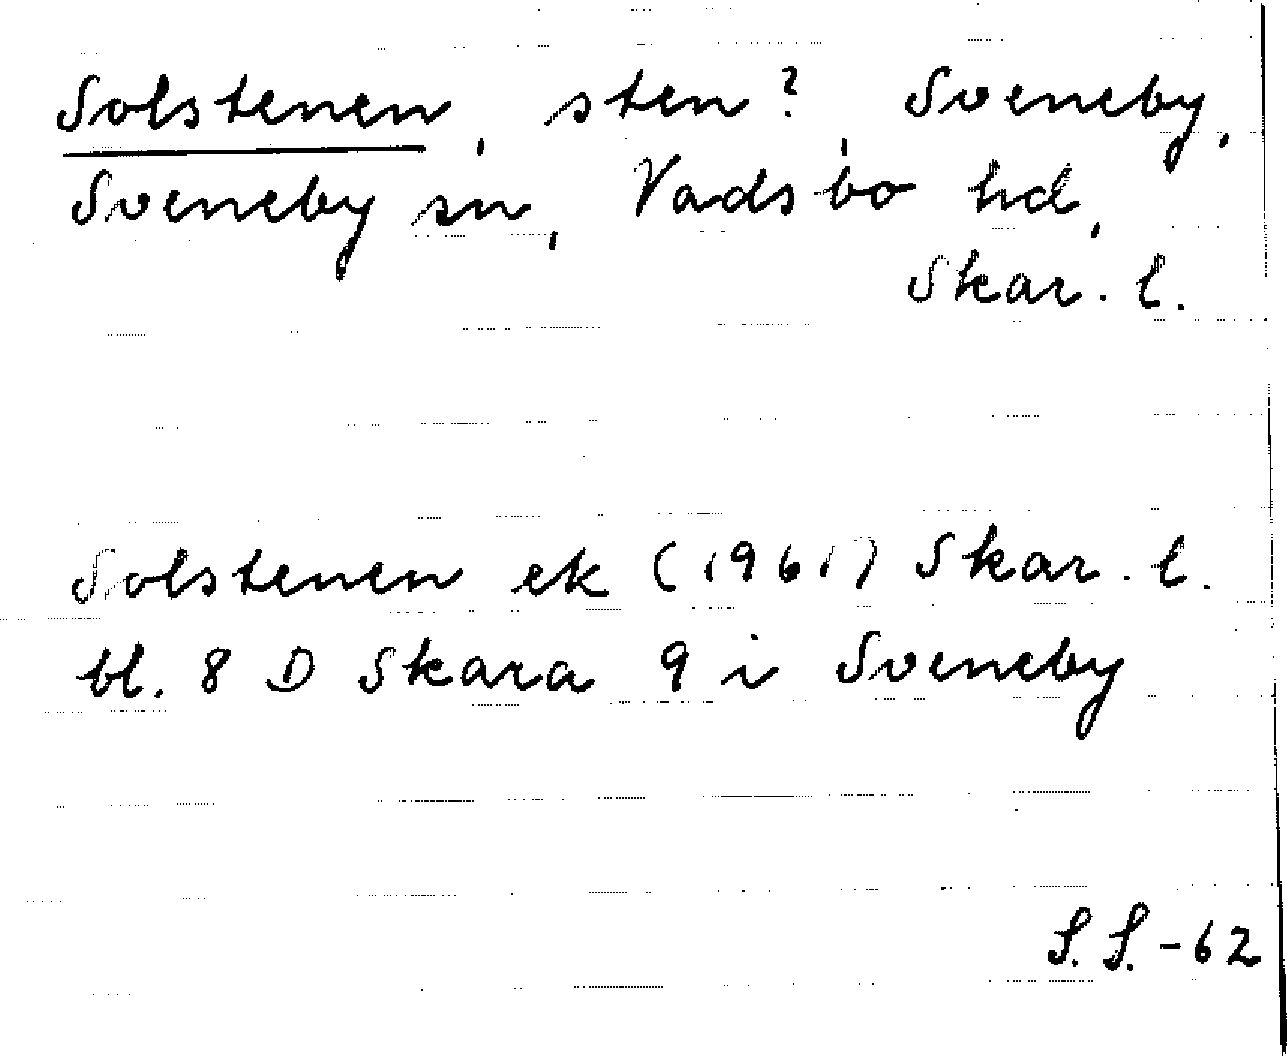 Solstenen, sten?, Sveneby,
Sveneby sn, Vadsbo hd,
Skar. l.
Solstenen ek (1961) Skar. l.
bl. 8 D Skara 9 i Sveneby
S. S. -62